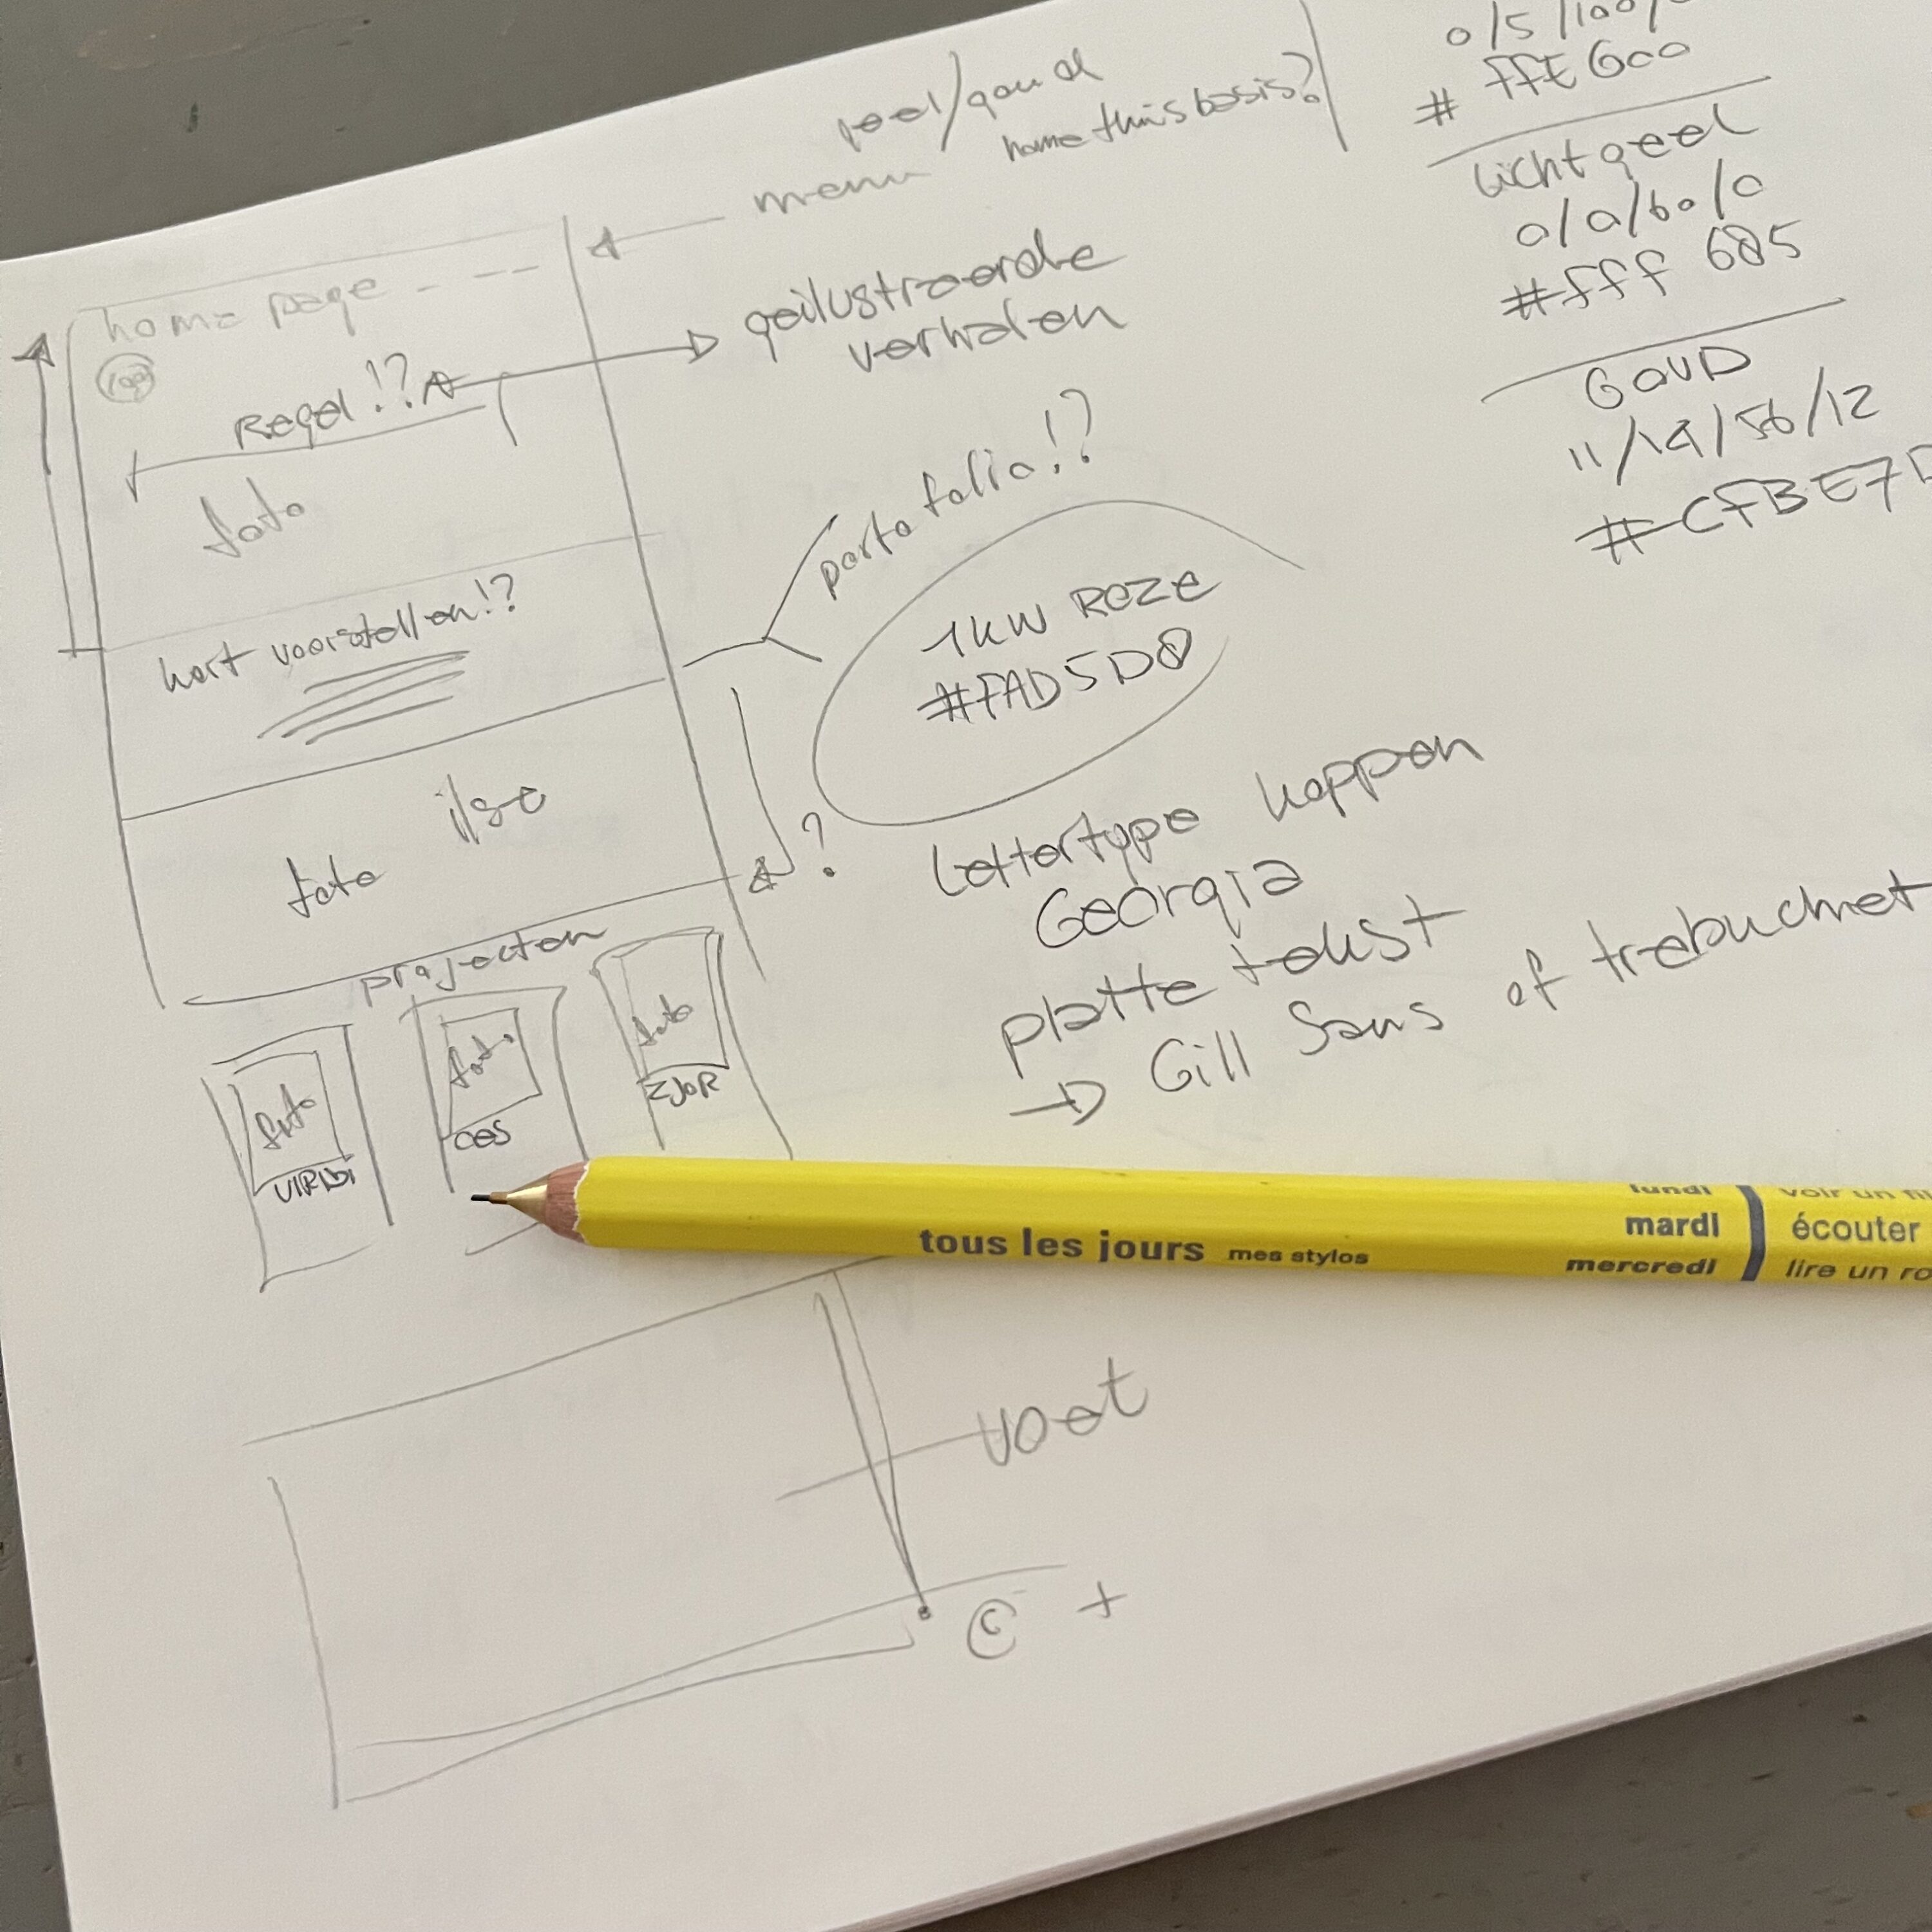 geel/goud
home thuisbasis?
menu
home page
Regel!?
foto
kort voorstellen!?
foto ilse
projecten
foto
VIRIDI
foto
ces
foto
ZJOR
geilustreerde
verhalen
portofolio!?
?
1KW ROZE
#FAD5D8
Lettertype koppen
Georgia
platte tekst
→ Gill Sans of trebuchet
voet
© +
0/5/100/
# FFE600
Lichtgeel
0/0/60/0
#fff 685
GOUD
11/19/56/12
#CFBE7
tous les jours mes stylos
lundi
mardi
mercredi
voir un fi
écouter
lire un ro